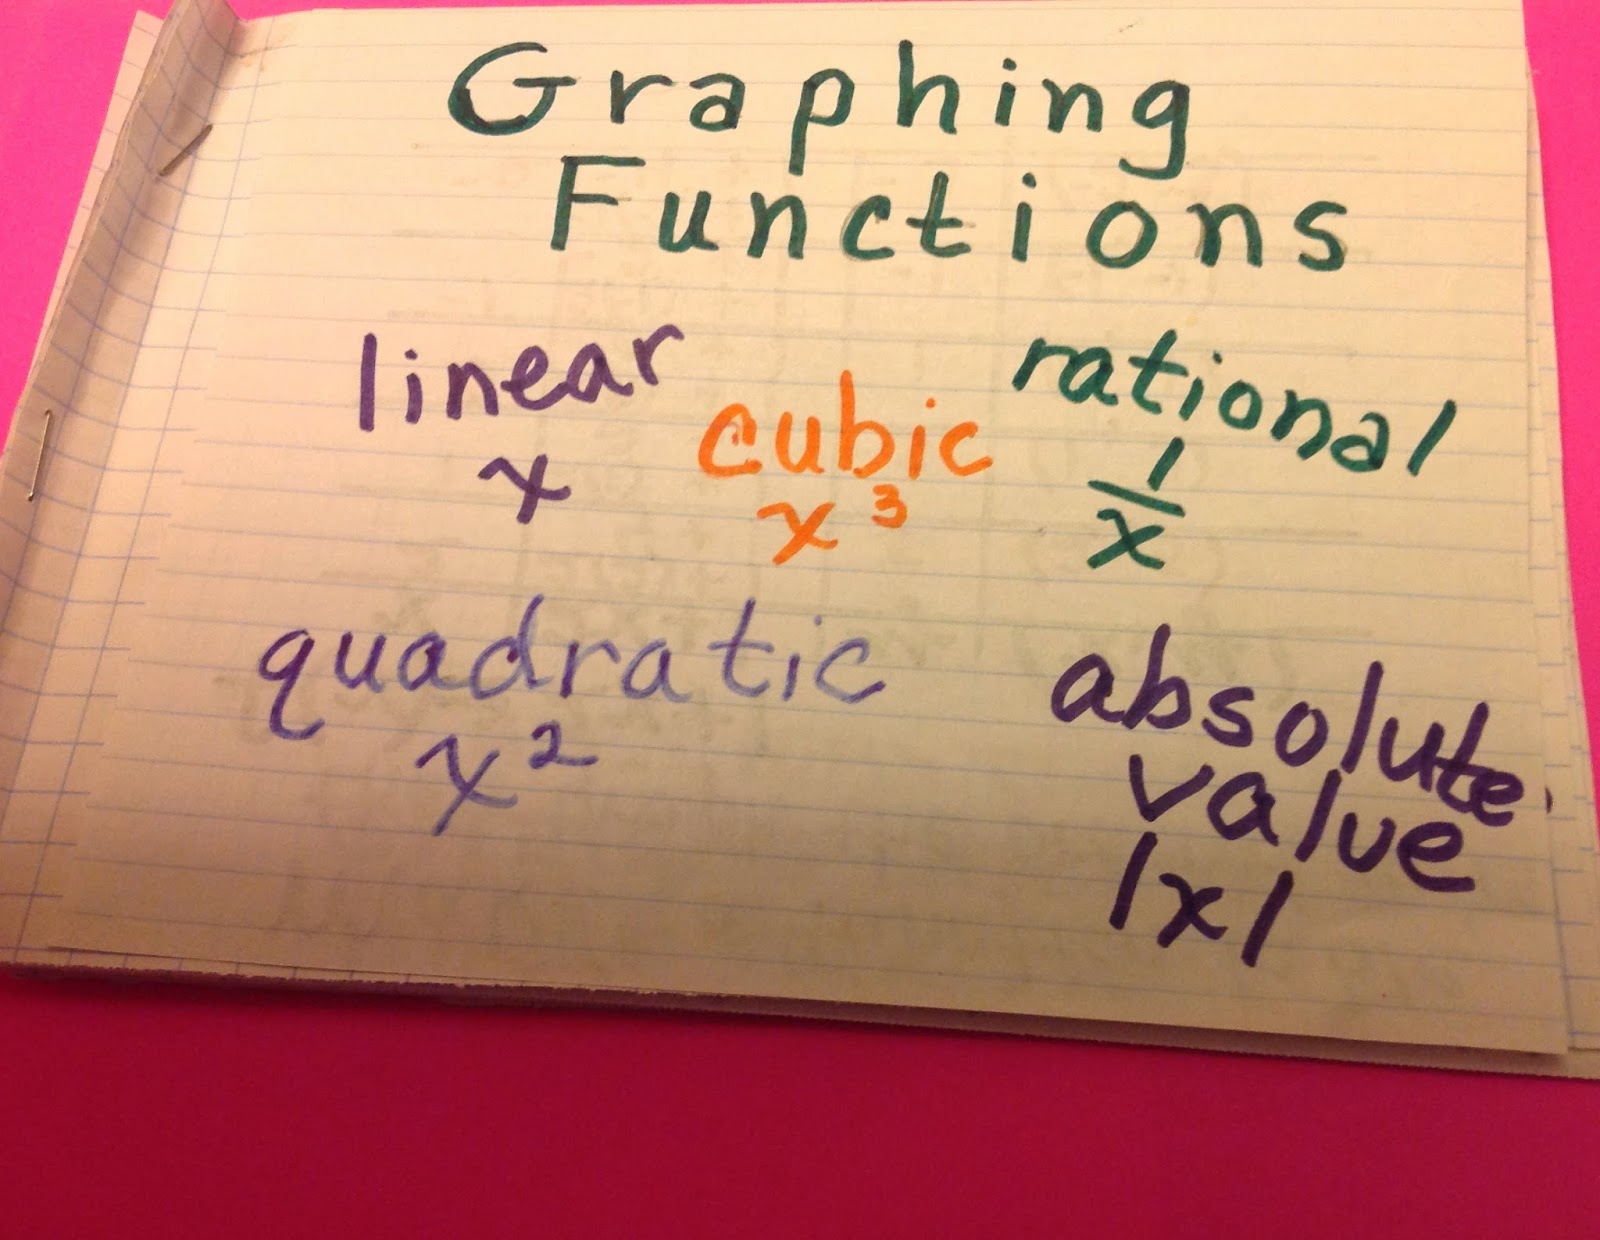 Graphing
Functions
linear
x
cubic
x³
rational
1/x
quadratic
x²
absolute
value
|x|